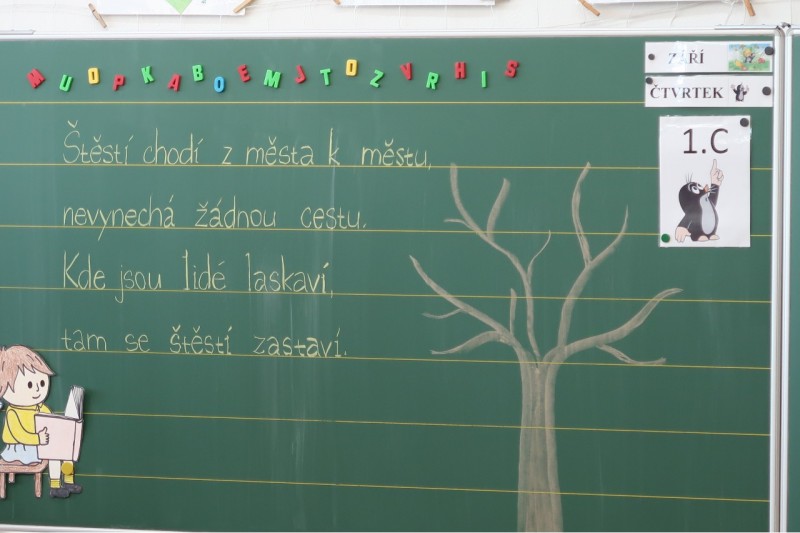 M U O P K A B O E M J T O Z V R H I S
ZÁŘÍ
ČTVRTEK
1.C
Štěstí chodí z města k městu,
nevynechá žádnou cestu.
Kde jsou lidé laskaví,
tam se štěstí zastaví.